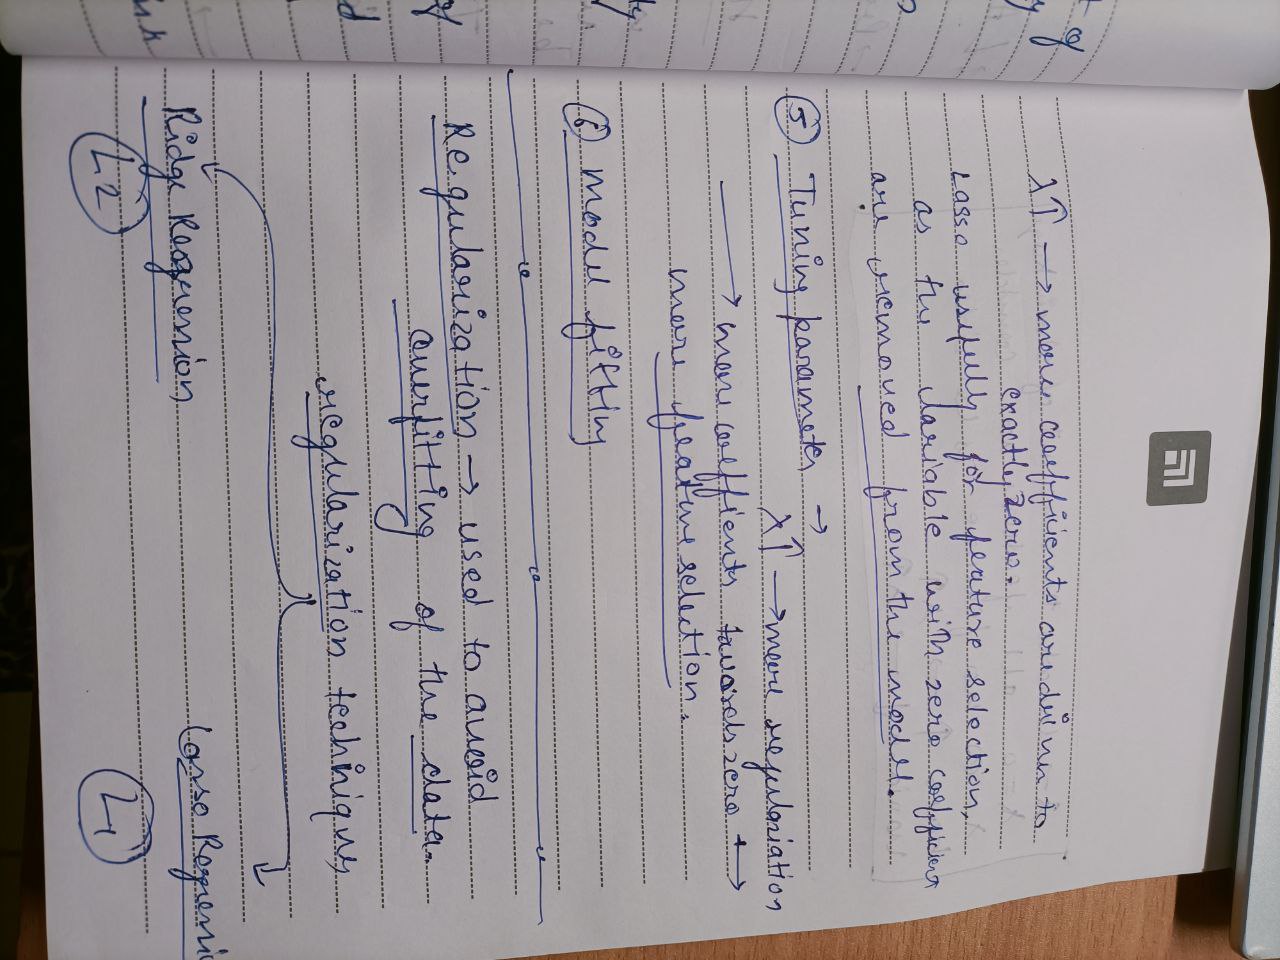 λ↑ → more coefficients are driven to
exactly zero.
Lasso usefully for feature selection,
as the variable with zero coefficient
are removed from the model.
⑤ Tuning parameter →
λ↑ → more regulariation
→ more coeffients towards zero →
more feature selection.
⑥ Model fitting
Regularization → used to avoid
overfitting of the data.
regularization technique
Ridge Regression
Lasso Regressi
L2
L1
of